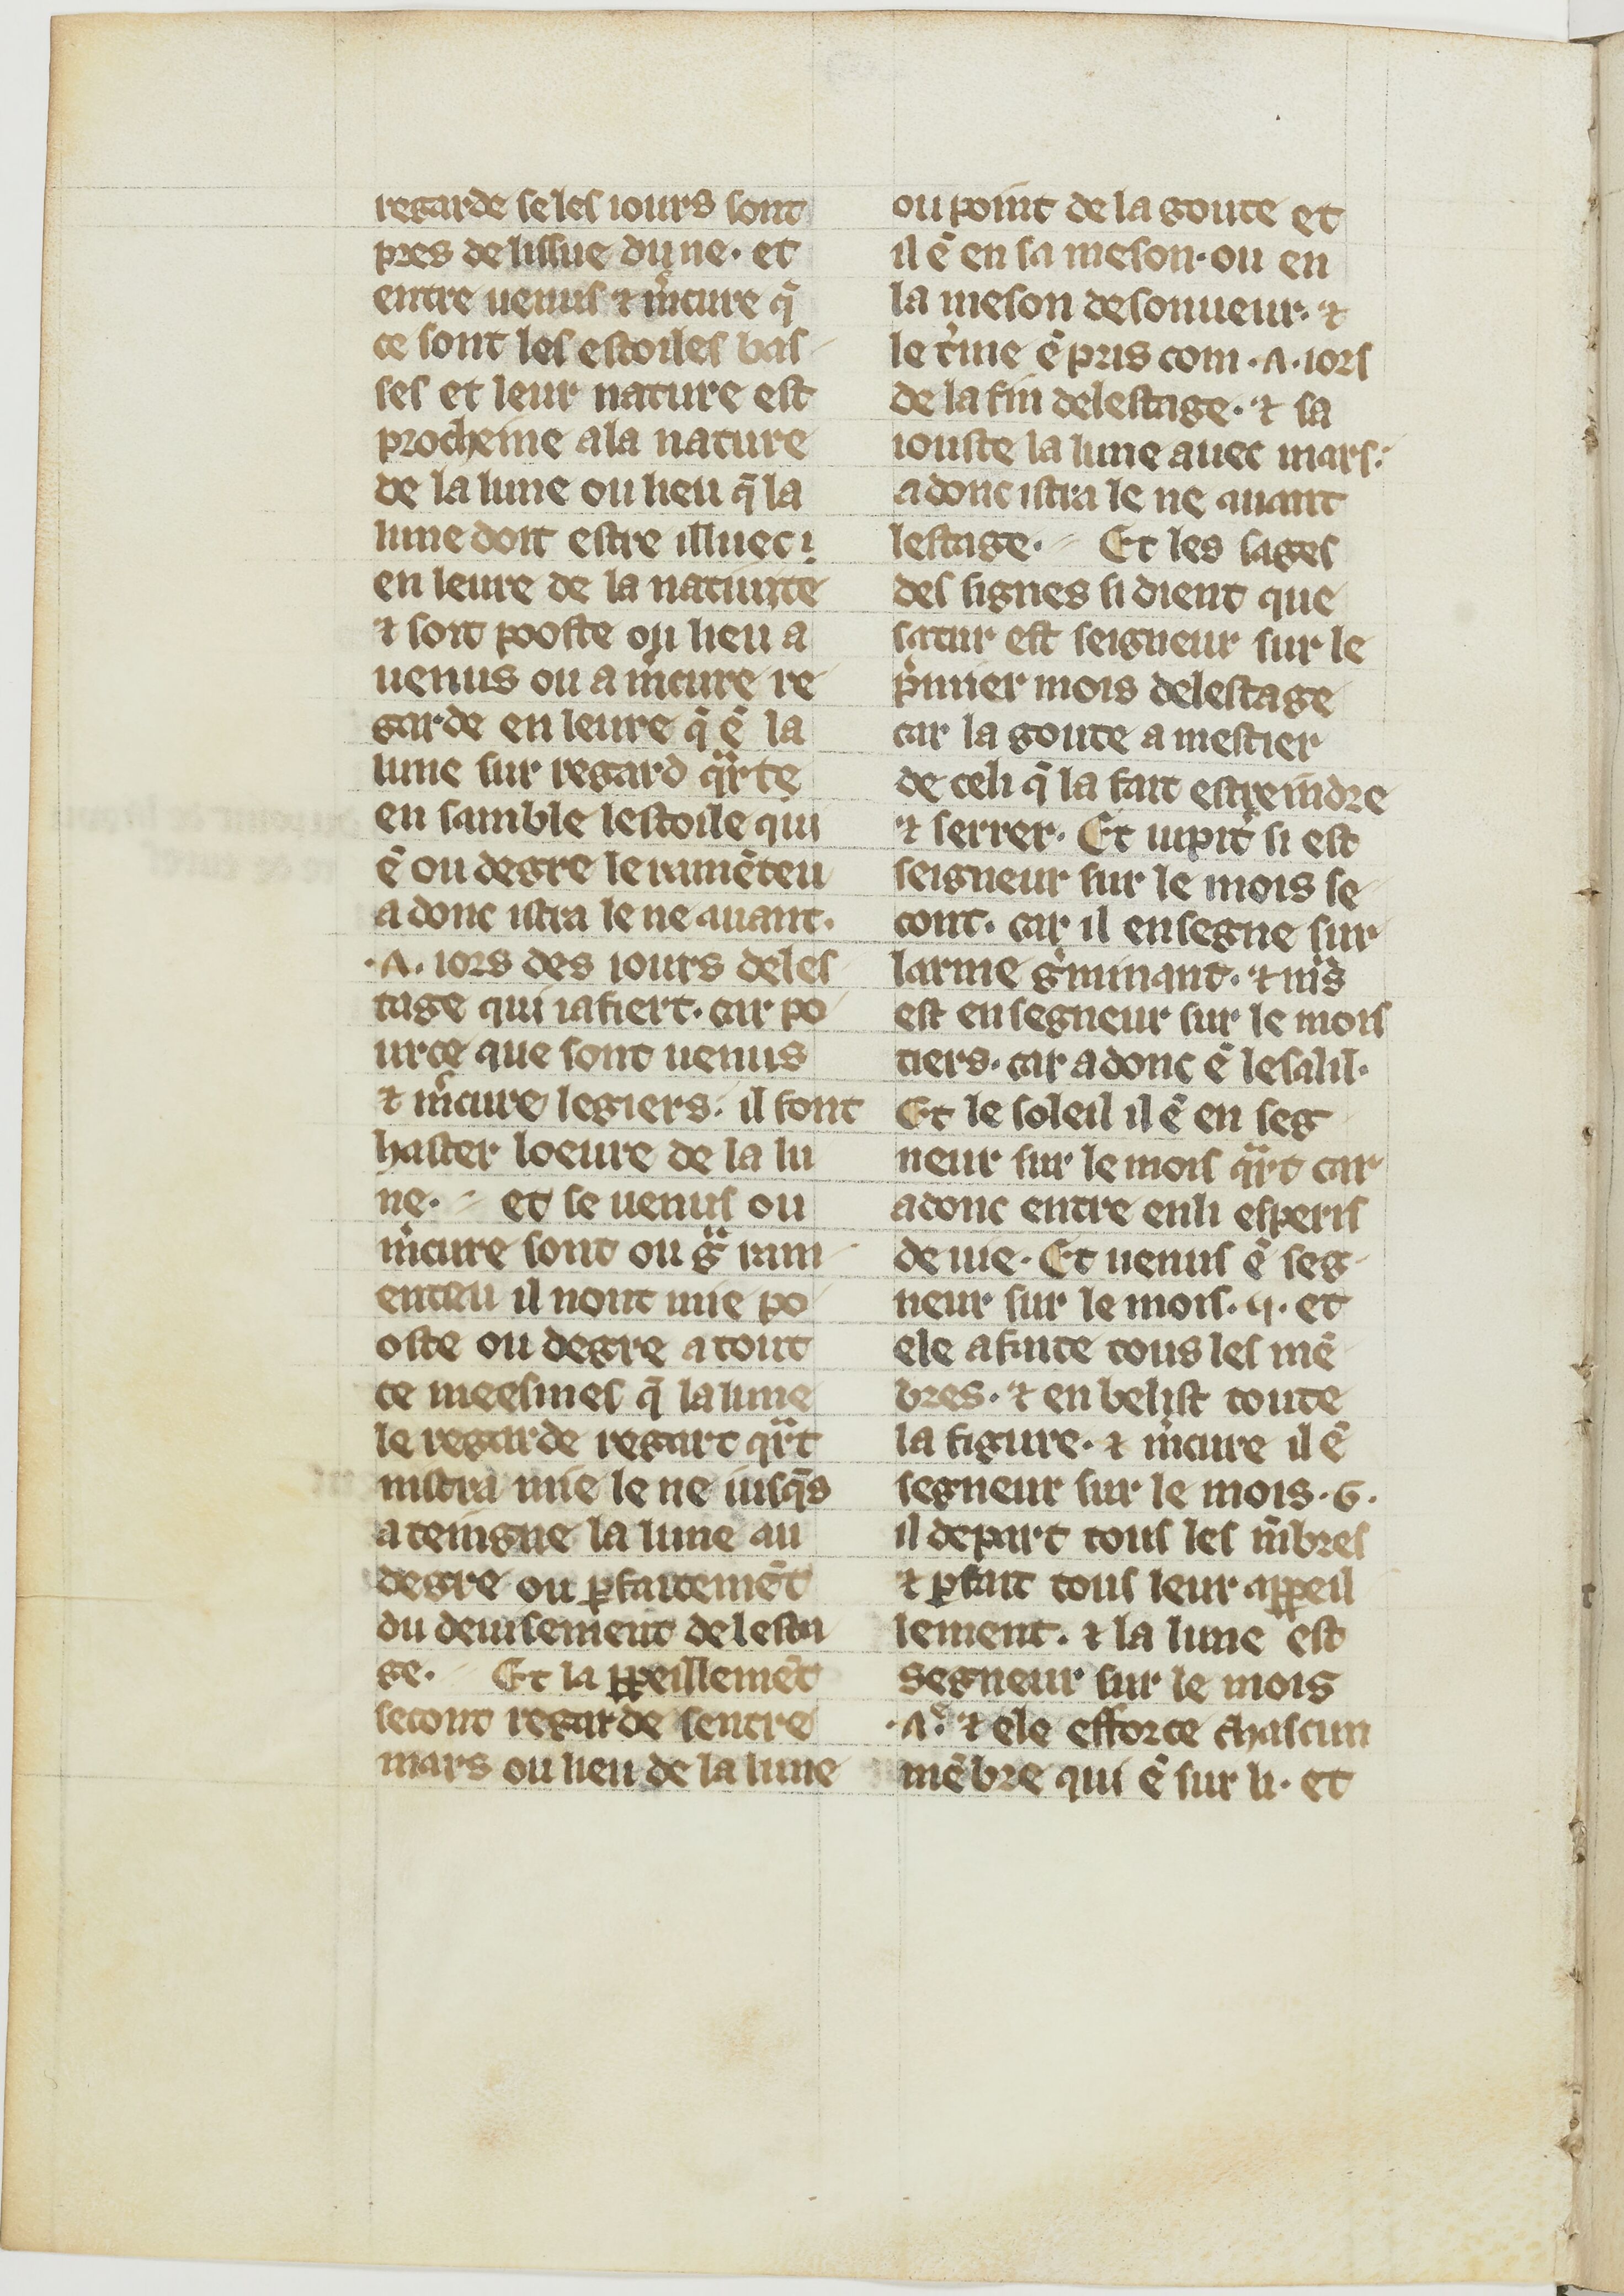 regarde se les iours sont
pres de lissue du ne. et
entre uenus ⁊ m̾cure q̄
ce sont les estoiles bas
ses et leur nature est
procheine a la nature
de la lune ou lieu q̄ la
lune doit estre illuec
en leure de la natiuite
⁊ soit pooste ou lieu a
uenus ou a m̾cure re
garde en leure q̄ ē la
lune sur regard qͣrte
en samble lestoile qui
ē ou degre le ramēteu
a donc istra le ne auant.
.A. iors des iours de les
tage qui iafiert. car po
urce que sont uenus
⁊ m̾cure legiers. il font
haster loeure de la lu
ne. et se uenus ou
m̾cure sont ou gͣ ram
enteu il nont mie po
oste ou degre a tout
ce meesmes q̄ la lune
le regarde regart qͣrt
nistra mie le ne iusq̄s
a teingne la lune au
degre ou ꝑfaitemēt
du deuisement de lesta
ge. Et la ꝑpeillemēt
secont regarde sentre
mars ou lieu de la lune
ou point de la goute et
il ē en sa meson. ou en
la meson de sonueur. ⁊
le t̾me ē pris com .A. iors
de la fin de lestage. ⁊ sa
iouste la lune auec mars.
a donc istra le ne auant
lestage. Et les sages
des signes si dient que
satur est seigneur sur le
p̾mier mois de lestage
car la goute a mestier
de celi q̄ la fait estreindre
⁊ serrer. Et iupit̾ si est
seigneur sur le mois se
cont. car il ensegne sur
larme g̾minant. ⁊ m̾s
est en segneur sur le mois
tiers. car a donc ē lesalil.
Et le soleil il ē en seg
neur sur le mois qͣrt car
adonc entre en li esperis
de uie. Et uenus ē seg
neur sur le mois .q. et
ele afaite tous les mē
bres. ⁊ en belist toute
la figure. ⁊ m̾cure il ē
segneur sur le mois .6.
il depart tous les m̄bres
⁊ ꝑfait tous leur aꝑpeil
lement. ⁊ la lune est
segneur sur le mois
.A. ⁊ ele efforce chascun
mēbre qui ē sur li. et